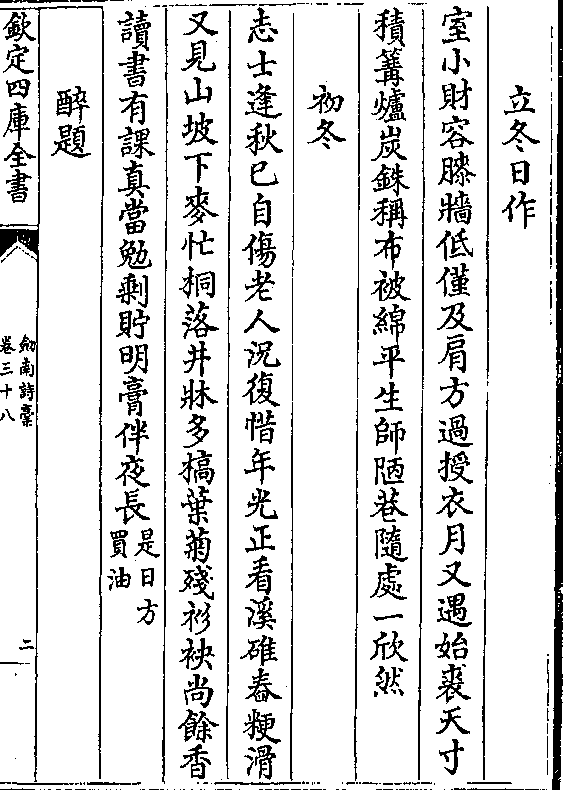 立冬日作
室小財容膝牆低僅及肩方過授衣月又遇始裘天寸
積篝爐炭銖稱布被綿平生師陋巷隨處一欣然
初冬
志士逢秋已自傷老人況復惜年光正看溪碓舂粳滑
又見山坡下麥忙桐落井牀多槁葉菊殘衫袂尚餘香
讀書有課真當勉剩貯明膏伴夜長是日方買油
醉題
欽定四庫全書
劎南詩藁
卷三十八
二